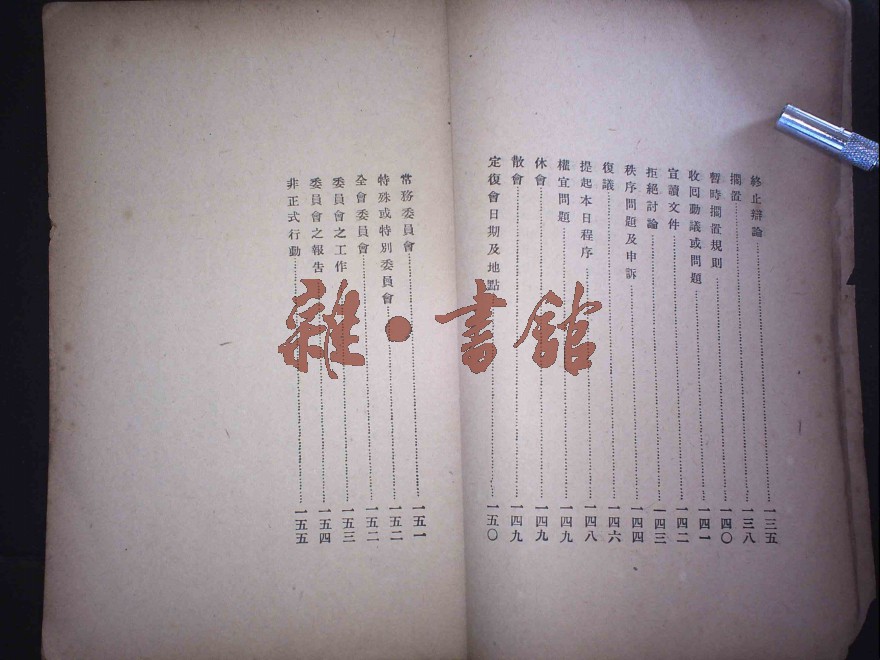 終止辯論……一三五
擱置……一三八
暫時擱置規則……一四〇
收回動議或問題……一四一
宣讀文件……一四二
拒絕討論……一四三
秩序問題及申訴……一四四
復議……一四六
提起本日程序……一四八
權宜問題……一四九
休會……一四九
散會……一四九
定復會日期及地點……一五〇
常務委員會……一五一
特殊或特別委員會……一五二
全會委員會……一五二
委員會之工作……一五三
委員會之報告……一五四
非正式行動……一五五
雜·書館